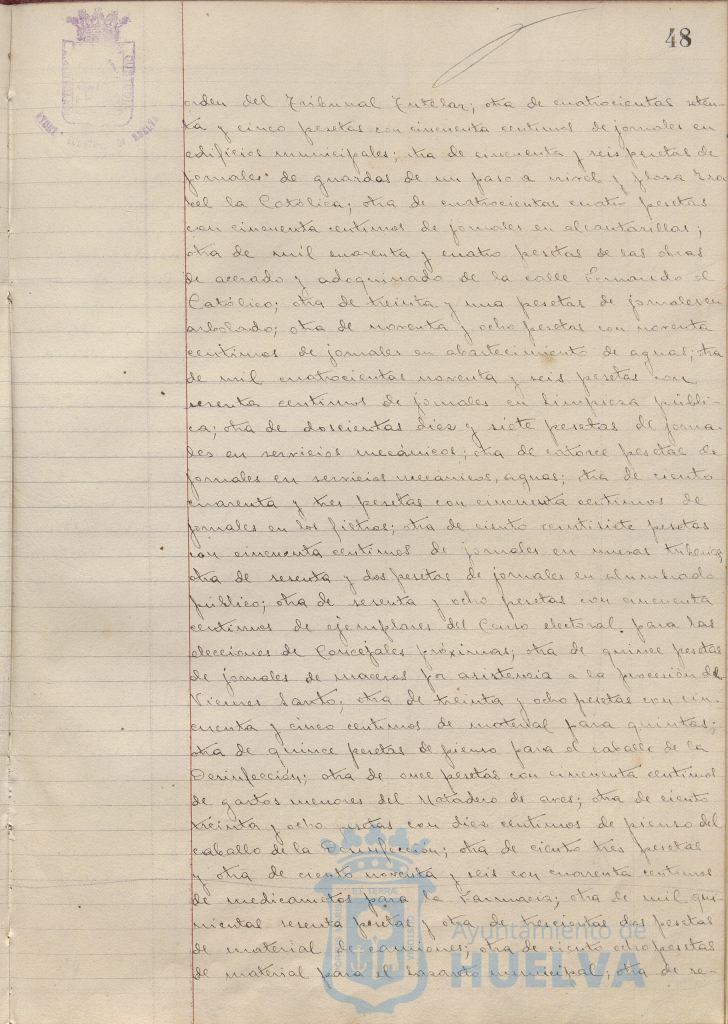 48
orden del Tribunal Tutelar; otra de cuatrocientas seten-
ta y cinco pesetas con cincuenta centimos de jornales en
edificios municipales; otra de cincuenta y seis pesetas de
jornales de guardas de un paso a nivel y plaza Isa
bel la Católica; otra de cuatrocientas cuatro pesetas
con cincuenta centimos de jornales en alcantarillas;
otra de mil cuarenta y cuatro pesetas de las obras
de acerado y adoquinado de la calle Fernando el
Católico; otra de treinta y una pesetas de jornales en
arbolado; otra de noventa y ocho pesetas con noventa
centimos de jornales en abastecimiento de aguas; otra
de mil cuatrocientas noventa y seis pesetas con
sesenta centimos de jornales en limpieza públi-
ca; otra de doscientas diez y siete pesetas de jorna-
les en servicios mecánicos; otra de catorce pesetas de
jornales en servicios mecanicos, aguas; otra de ciento
cuarenta y tres pesetas con cincuenta centimos de
jornales en los filtros; otra de ciento veintisiete pesetas
con cincuenta centimos de jornales en nuevas tuberias;
otra de sesenta y dos pesetas de jornales en alumbrado
público; otra de sesenta y ocho pesetas con cincuenta
centimos de ejemplares del Censo electoral para las
elecciones de Concejales próximas; otra de quince pesetas
de jornales de maceros por asistencia a la procesión del
Viernes Santo; otra de treinta y ocho pesetas con cin-
cuenta y cinco centimos de material para quintas;
otra de quince pesetas de pienso para el caballo de la
Desinfección; otra de once pesetas con cincuenta centimos
de gastos menores del Matadero de aves; otra de ciento
treinta y ocho pesetas con diez centimos de pienso del
caballo de la Desinfección; otra de ciento tres pesetas
y otra de ciento noventa y seis con cuarenta centimos
de medicamentos para la Farmacia; otra de mil qui-
nientas sesenta pesetas y otra de trescientas dos pesetas
de material de camiones; otra de ciento ocho pesetas
de material para el Lazareto municipal; otra de se-
Ayuntamiento de
HUELVA